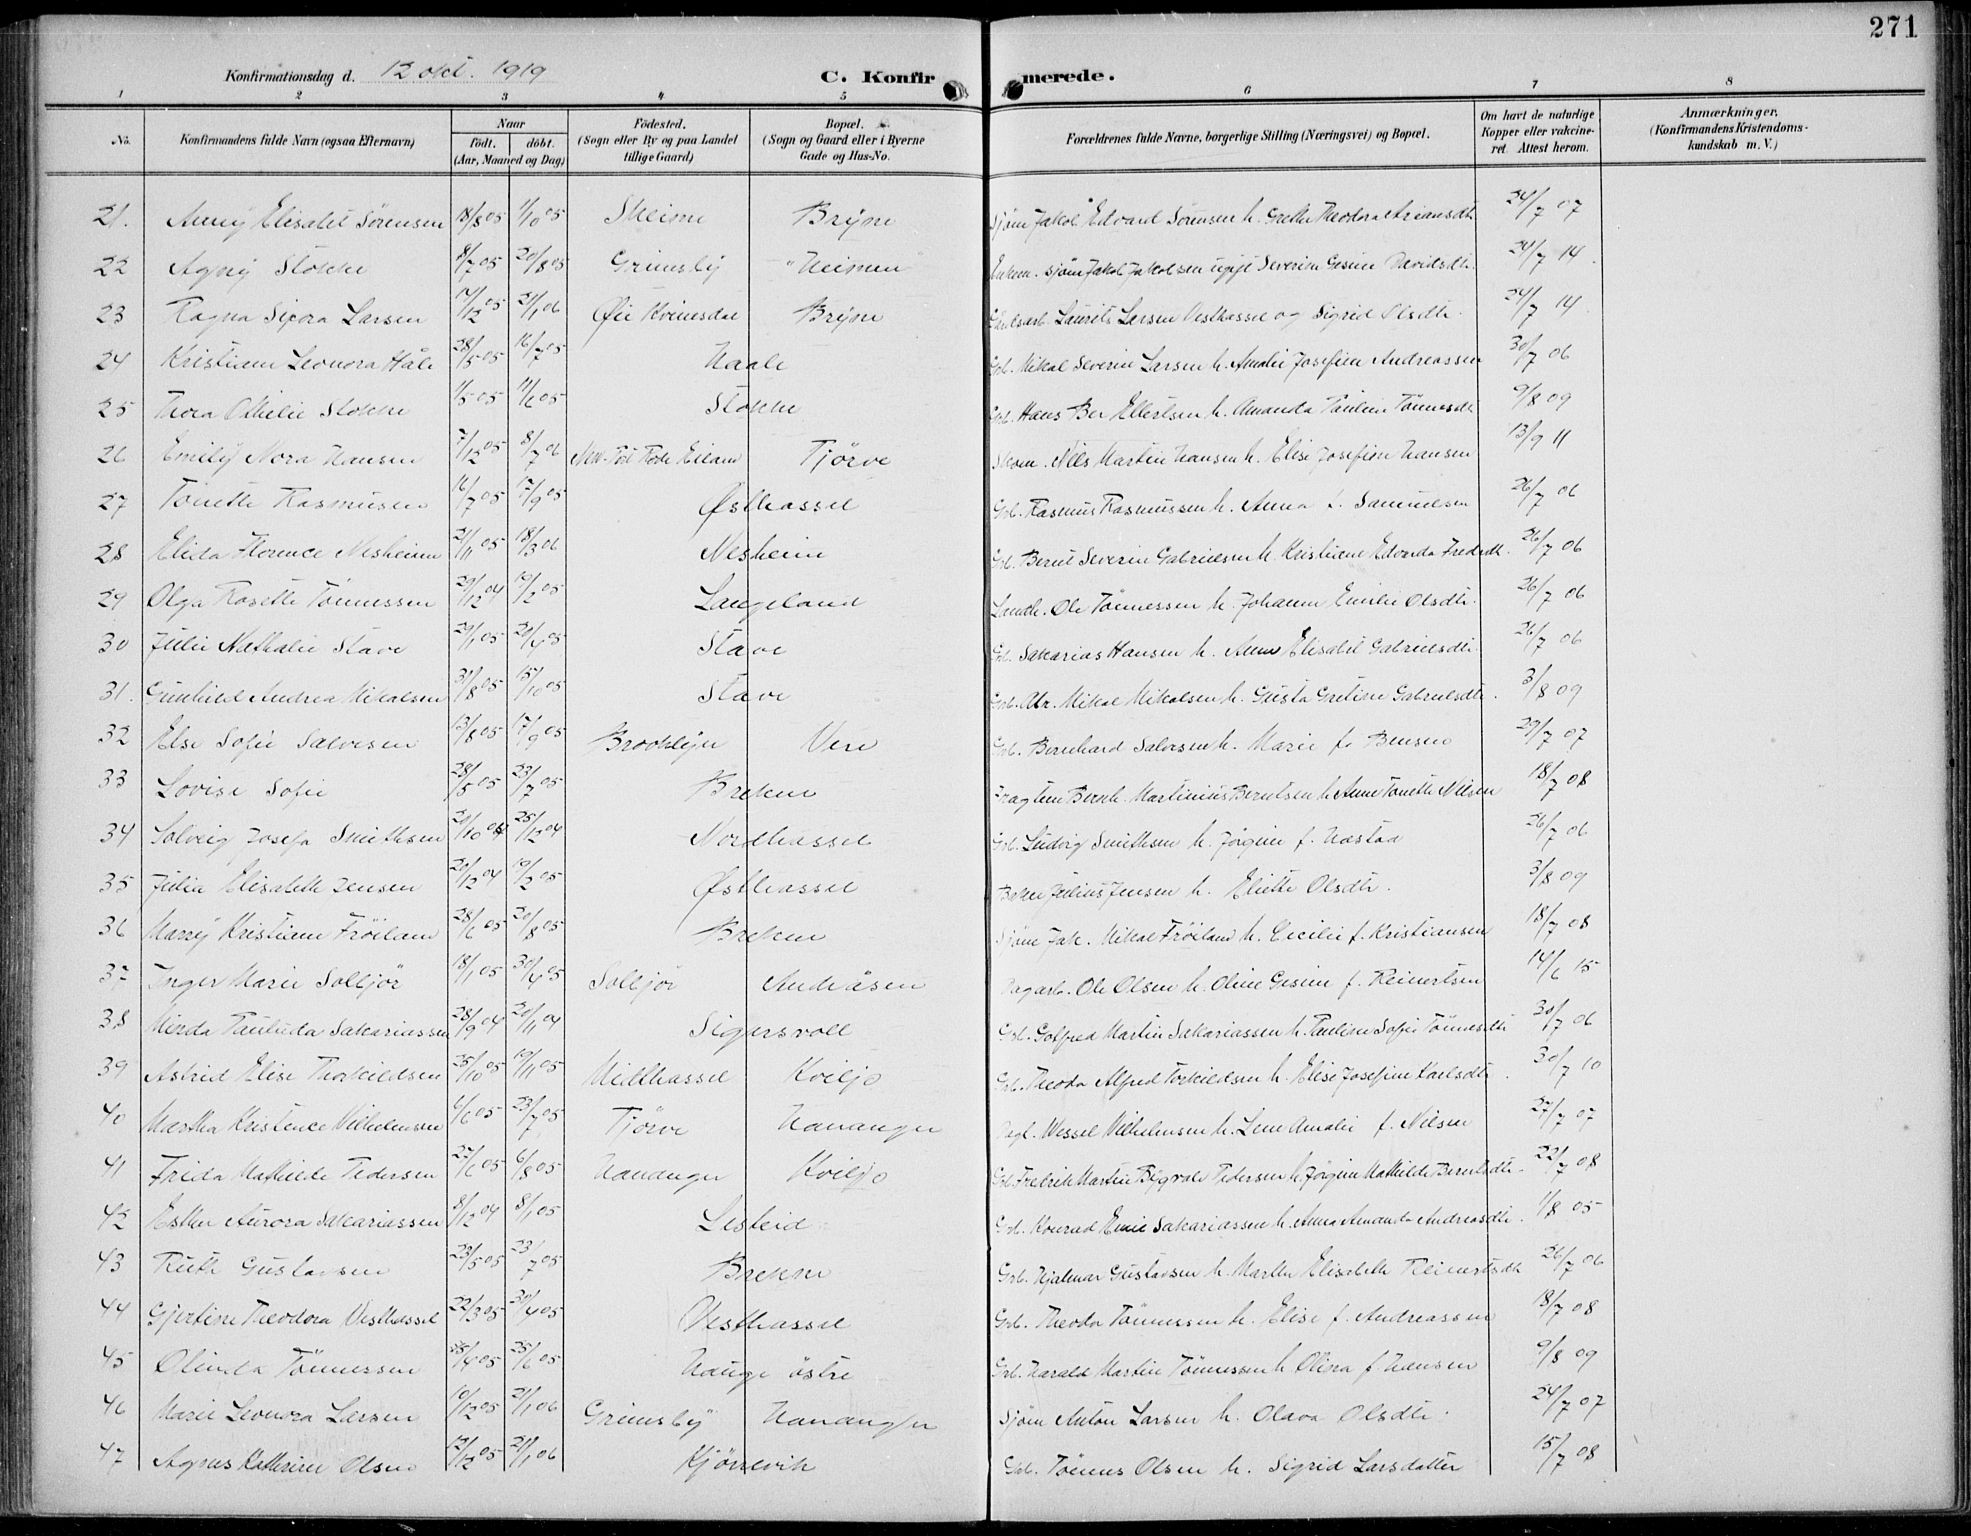 271
Konfirmationsdag d. 12 okt. 1919
C. Konfirmerede.
1 2 3 4 5 6 7 8
No. Konfirmandens fulde Navn (ogsaa Efternavn) Naar født. døbt. (Aar, Maaned og Dag) Fødested. (Sogn eller By og paa Landet tillige Gaard) Bopæl. (Sogn og Gaard eller i Byerne Gade og Hus-No. Forældrenes fulde Navne, borgerlige Stilling (Næringsvei) og Bopæl. Om havt de naturlige Kopper eller vakcineret. Attest herom. Anmærkninger. (Konfirmandens Kristendomskundskab m. V.)
21. Anny Elisabet Sörensen 18/8 05 1/10 05 Skeime Brÿne Sjöm Jakob Edvard Sörensen h. Grethe Theodora Ariansdtr 24/7 07
22 Agny Stokke 8/7 05 20/8 05 Grimsby "Heimen" Enkem. sjöm Jakob Jakobsen ugift Severine Gesine Davidsdtr. 24/7 14.
23 Ragna Sigora Larsen 14/12 05 21/1 06 Øie Kvinesdal Brÿne Laurits Larsen Vesthassel og Sigrid Olsdtr. 24/7 14.
24 Kristiane Leonora Håle 28/5 05 16/7 05 Haale Grb. Mikal Severin Larsen h. Amalie Josefine Andreassen 30/7 06
25 Thora Othelie Stokke 1/5 05 11/6 05 Stokke Grb. Hans Ber Ellertsen h. Amanda Pauline Tönnesdtr 9/8 09
26 Emily Nora Hansen 7/12 05 8/7 06 Tjörve Skom. Nils Martin Hansen h. Elise Josefine Hansen 13/9 11
27 Tonette Rasmusen 16/7 05 17/9 05 Østhassel Grb. Rasmus Rasmussen h. Anna f. Samuelsen 26/7 06
28 Elida Florence Nesheim 21/11 05 18/3 06 Nesheim Grb. Bernt Severin Gabrielsen h. Kristiane Edvarda Fredrdtr. 26/7 06
29 Olga Rosette Tönnessen 29/12 04 19/2 05 Langeland Landh. Ole Tönnessen h. Johanne Emilie Olsdtr. 26/7 06
30 Julie Nathalie Stave 29/1 05 20/4 05 Stave Grb. Sakarias Hansen h. Anne Elisabet Gabrielsdtr. 26/7 06
31. Gunhild Andrea Mikalsen 31/8 05 15/10 05 Stave Grb. Abr. Mikal Mikalsen h. Gusta Gretine Gabrielsdtr. 3/8 09
32 Else Sofie Salvesen 13/8 05 17/9 05 Brooklyn Vere Grb. Bernhard Salvesen h. Marie f. Bensen 29/7 07
33 Lovise Sofie 28/5 05 23/7 05 Brekne Martinius Berntsen h Anne Tonette Nilsen 18/7 08
34 Solveig Josefa Smithsen 20/10 04 25/12 04 Nordhassel Grb. Ludvig Smithsen h. Jörgine f. Hastad 26/7 06
35 Julia Elisabeth Jensen 20/12 04 19/2 05 Østhassel Baker Julius Jensen h. Eliette Olsdtr. 3/8 09
36 Marry Kristiane Fröiland 28/6 05 20/8 05 Brekne Sjöm Jak. Mikal Fröiland h. Cecilie f. Kristiansen 18/7 08
37 Inger Marie Solbjör 18/1 05 30/4 05 Solbjör Andråsen Dagarb. Ole Olsen h. Oline Gesine f. Reinertsen 14/6 15
38 Minda Paulinda Sakariassen 28/9 04 20/11 04 Sigersvoll Grb. Golfred Martin Sakariassen h. Pauline Sofie Tönnesdtr 30/7 06
39 Astrid Elise Thorkildsen 25/10 05 19/11 05 Midthassel Kviljo Grb. Theodor Alfred Torkildsen h. Elise Josefine Karlsdtr. 30/7 10
40 Martha Kristence Vilhelmsen 6/6 05 23/7 05 Tjörve Hananger Dagl. Wessel Vilhelmsen h. Lene Amalie f. Nilsen 27/7 07
41 Frida Mathilde Pedersen 27/6 05 6/8 05 Hananger Kviljo Grb Fredrik Martin Bygvald Pedersen h. Jörgine Mathilde Berntsdtr. 22/7 08
42 Esther Aurora Sakariassen 8/12 04 8/1 05 Lesteid Grb. Konrad Emil Sakariassen h. Anna Amanda Andreasdtr. 11/8 05
43 Ruth Gustavsen 23/5 05 23/7 05 Brekne Grb. Hjalmar Gustavsen h. Marthe Elisabeth Reinertsdtr 26/7 06
44 Gjertine Theodora Vesthassel 22/3 05 30/4 05 Vesthassel Grb. Theodor Tönnessen h. Elise f. Andreassen 18/7 08
45 Olinda Tönnessen 25/4 05 25/6 05 Hauge östre Grb. Harald Martin Tönnessen h Olina f. Hansen 9/8 09
46 Marie Leonora Larsen 10/12 05 21/1 06 Grimsby Hananger Sjöm Anton Larsen h. Olava Olsdtr. 24/7 07
47 Agnes Kathrine Olsen 12/12 05 21/1 06 Kjörrevik Grb. Tönnes Olsen h. Sigrid Larsdatter 15/7 08